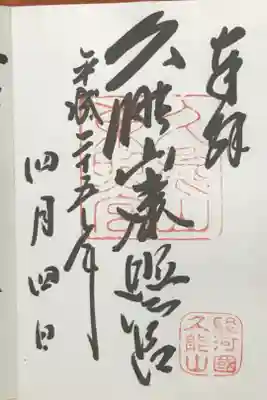 奉拝
久能山東照宮
平成二十五年
四月四日
駿河國
久能山